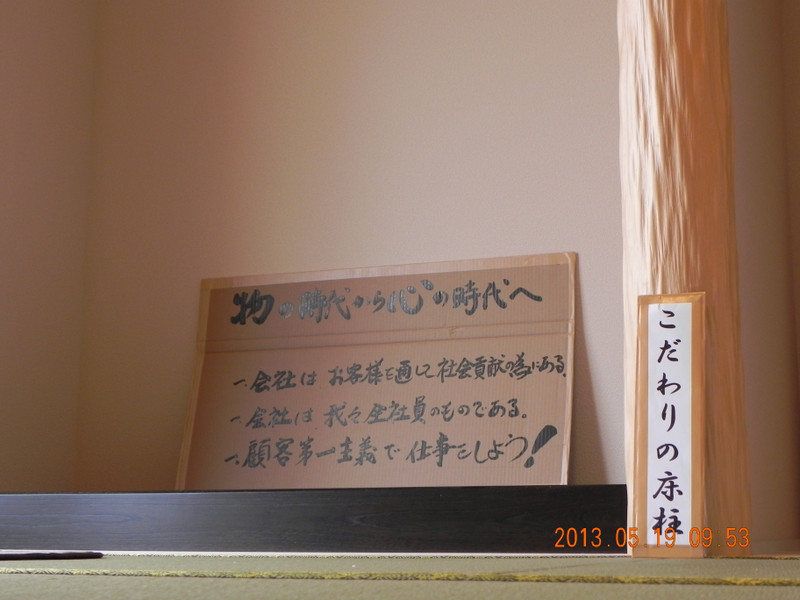 物の時代から心の時代へ
一、会社は お客様を通して社会貢献の為にある。
一、会社は 我々全社員のものである。
一、顧客第一主義で 仕事をしよう!
こだわりの床柱
2013.05.19 09:53